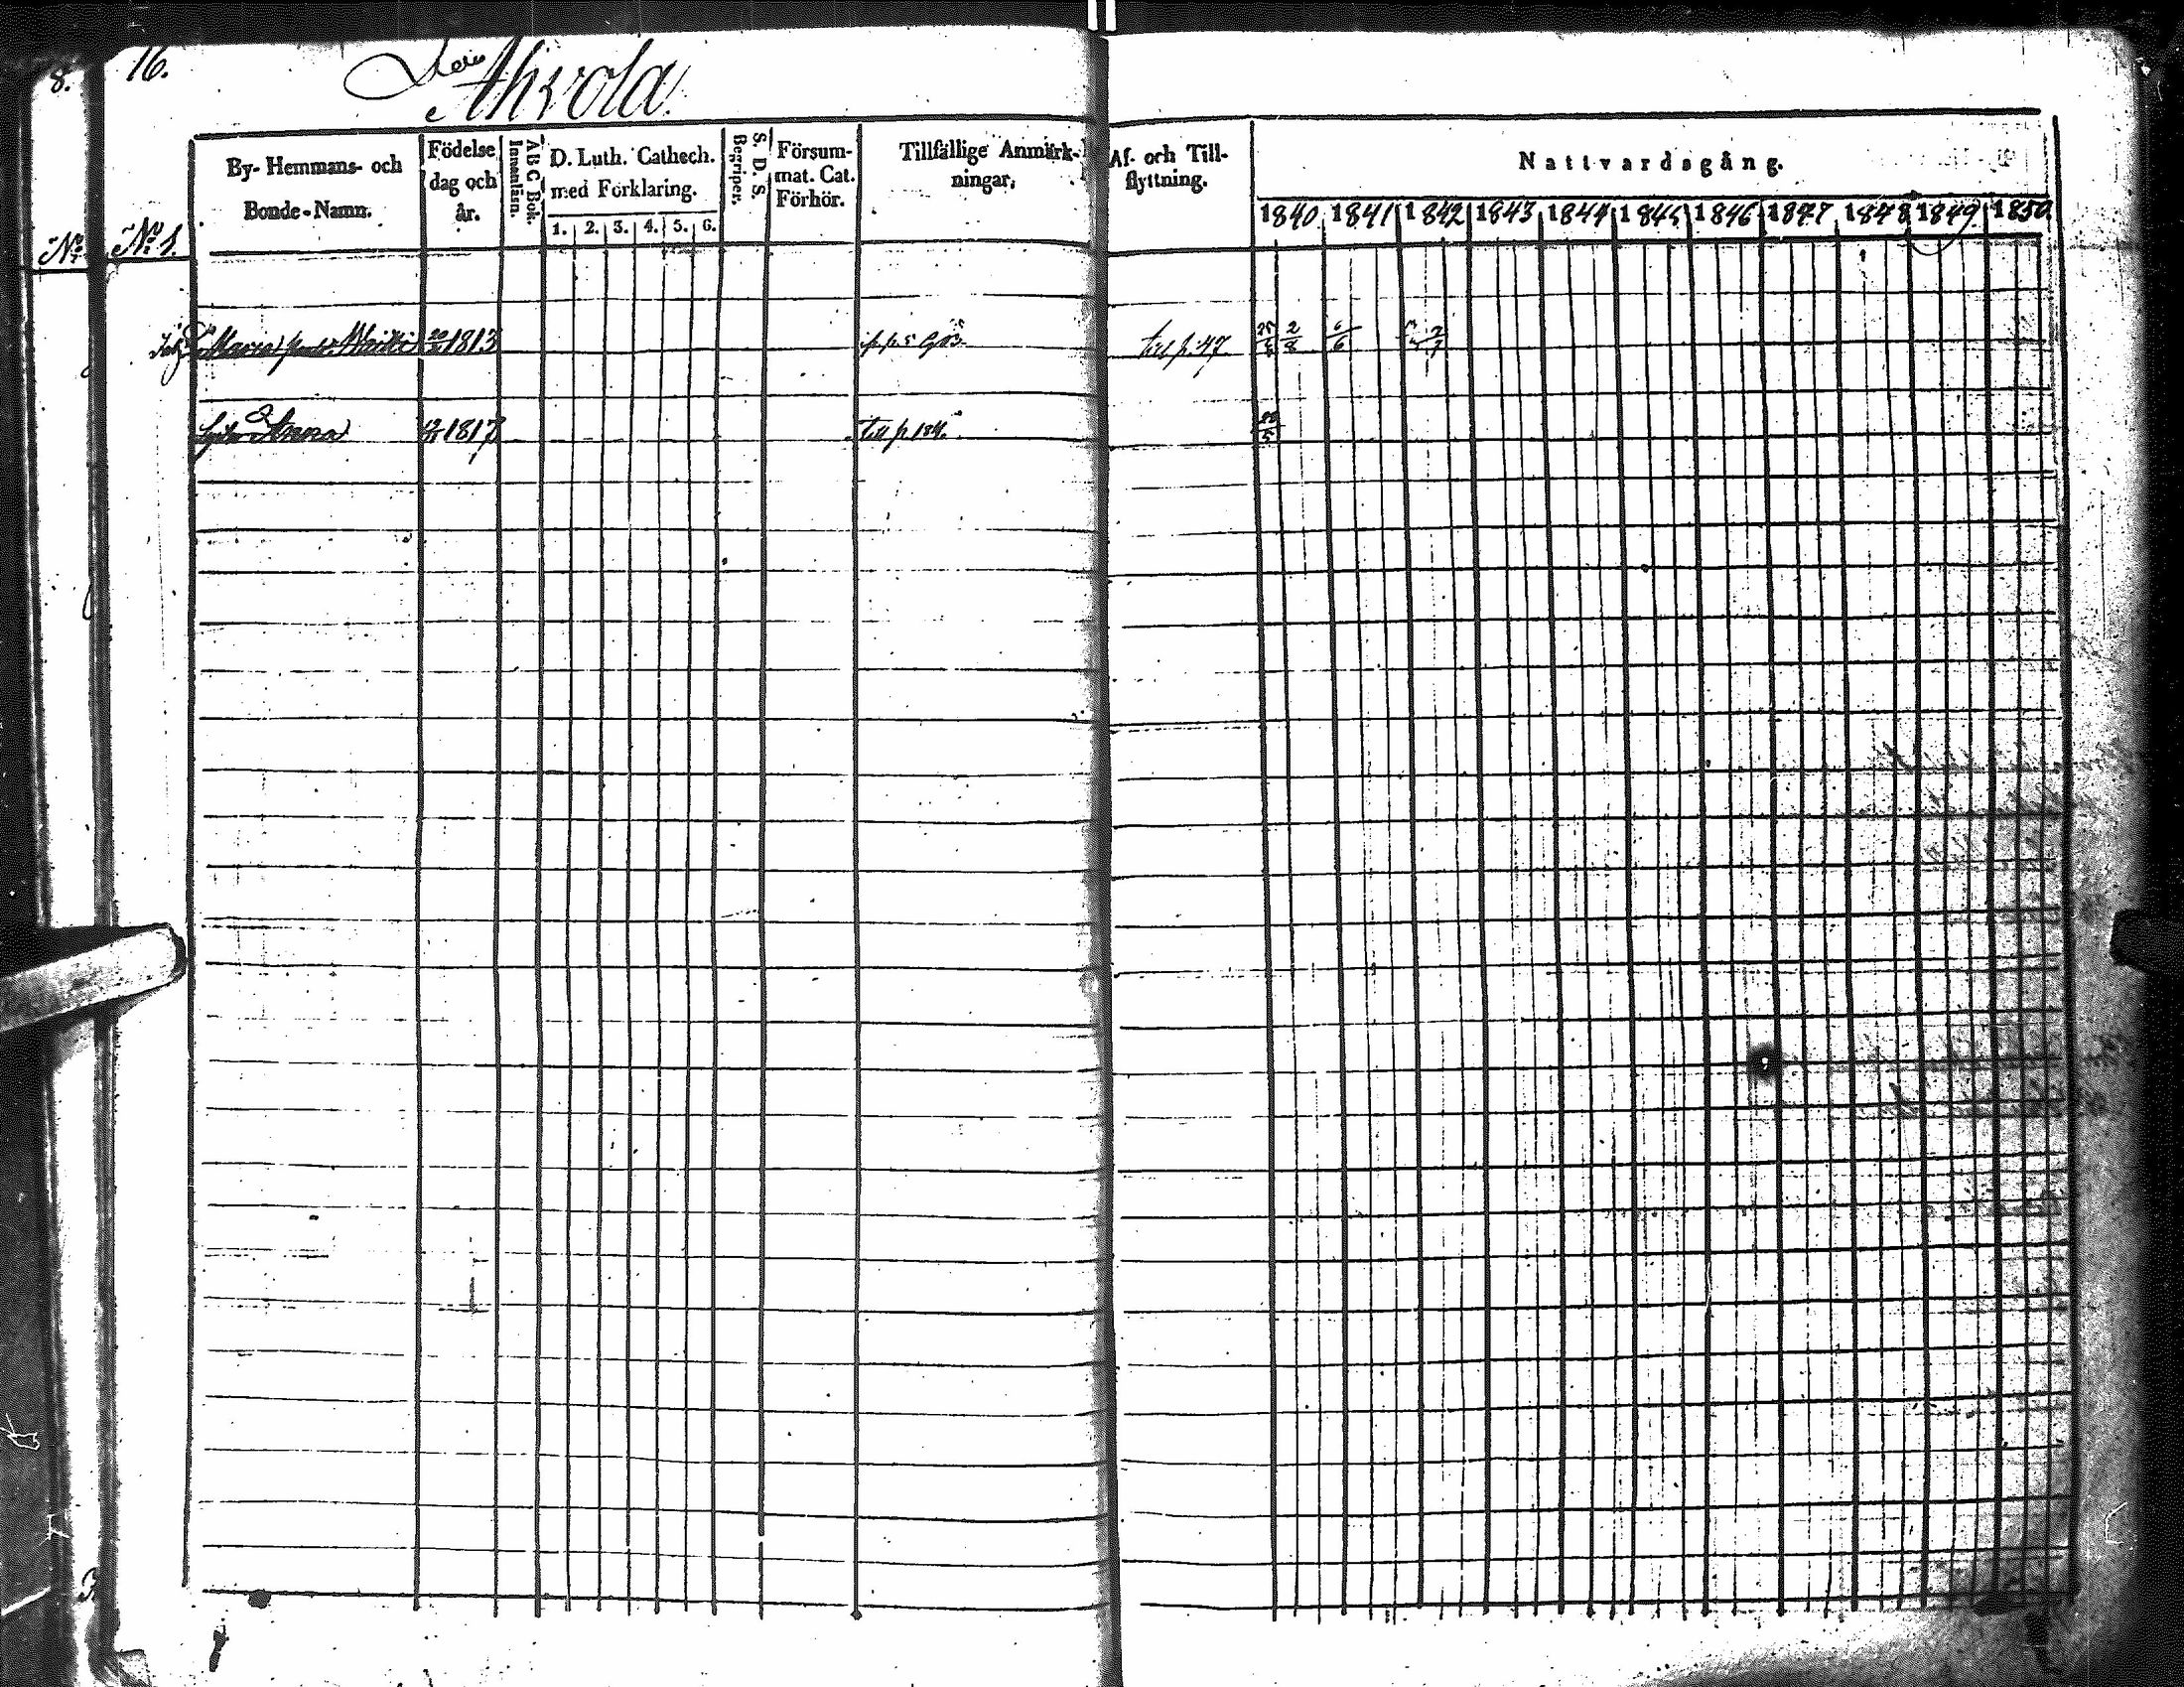 8.
16.
Ahvola
By- Hemmans- och
Bonde-Namn.
Födelse
dag och
år.
A B C Bok.
Innanläsn.
D. Luth. Cathech.
med Förklaring.
1. 2. 3. 4. 5. 6.
S. D. S.
Begriper.
Försum-
mat. Cat.
Förhör.
Tillfällige Anmärk-
ningar,
Af- och Till-
flyttning.
Nattvardsgång.
1840 1841 1842 1843 1844 1845 1846 1847 1848 1849 1850
No
No 1.
Maria Heikki 1813 till p. 47. 2/8 6/6
Anna 1817 till p 184.